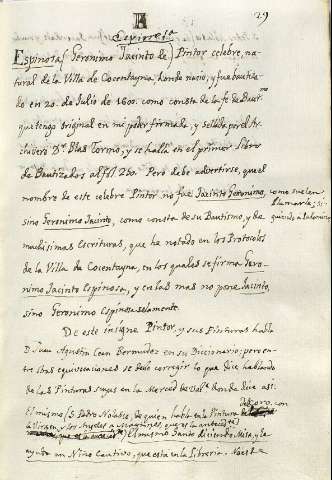 29
Espinosa
Espinosa (Geronimo Jacinto de) Pintor celebre, na-
tural de la Villa de Cocentayna honde nacio, y fue bautiza-
do en 20. de Julio de 1600. como consta de la fe de Baut.mo
que tengo original en mi poder firmada, y sellada por el Ar-
chivero D.n Blas Tormo, y se halla en el primer libro
de Bautizados al fol. 260. Pero debe advertirse, que el
nombre de este celebre Pintor no fue Jacinto Geronimo, como suelen
llamarle, si-
sino Geronimo Jacinto, como consta de su Bautismo, y de
muchisimas Escrituras, que he notado en los Protocolos
de la Villa de Cocentayna, en los quales se firma Gero-
nimo Jacinto Espinosa, y en las mas no pone Jacinto,
sino Geronimo Espinosa solamente.
De este insigne Pintor, y sus Pinturas habla
D. Juan Agustin Cean Bermudez en su Diccionario; pero en-
tre otras equivocaciones se debe corregir lo que dice hablando
de las Pinturas suyas en la Merced de Val.a donde dice asi:
de coro, con
El mismo (S. Pedro Nolasco, de quien habla en la Pintura
la Virgen, y los Angeles a Maytines, que es la antecedente)
El mismo Santo diciendo Misa, y le
ayuda un Niño Cautivo, que esta en la Libreria. Nuestra